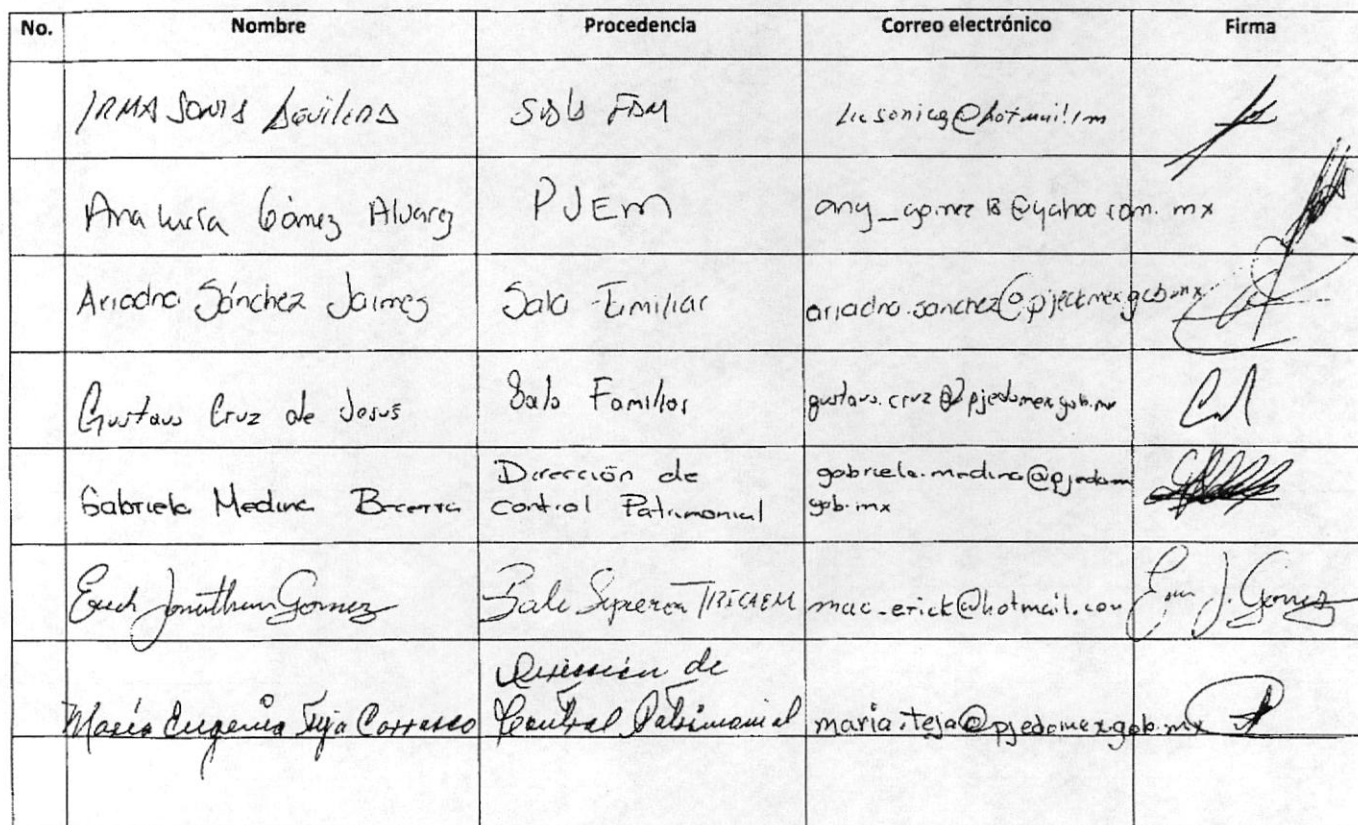 No. Nombre Procedencia Correo electrónico Firma
IRMA SONIA AGUILERA Sala FAM
Ana lucía Gómez Alvarez PJEM any_gomez18@yahoo.com.mx
Ariadna Sánchez Jaimes Sala Familiar ariadna.sanchez@pjedomex.gob.mx
Gustavo Cruz de Jesús Sala Familiar gustavo.cruz@pjedomex.gob.mx
Gabriela Medina Becerra Dirección de gabriela.medina@pjedom
control Patrimonial gob.mx
Erick Jonathan Gomez Sala Superior mac_erick@hotmail.com J. Gomez
Dirección de
María Eugenia Teja Carrasco Control Patrimonial maria.teja@pjedomex.gob.mx